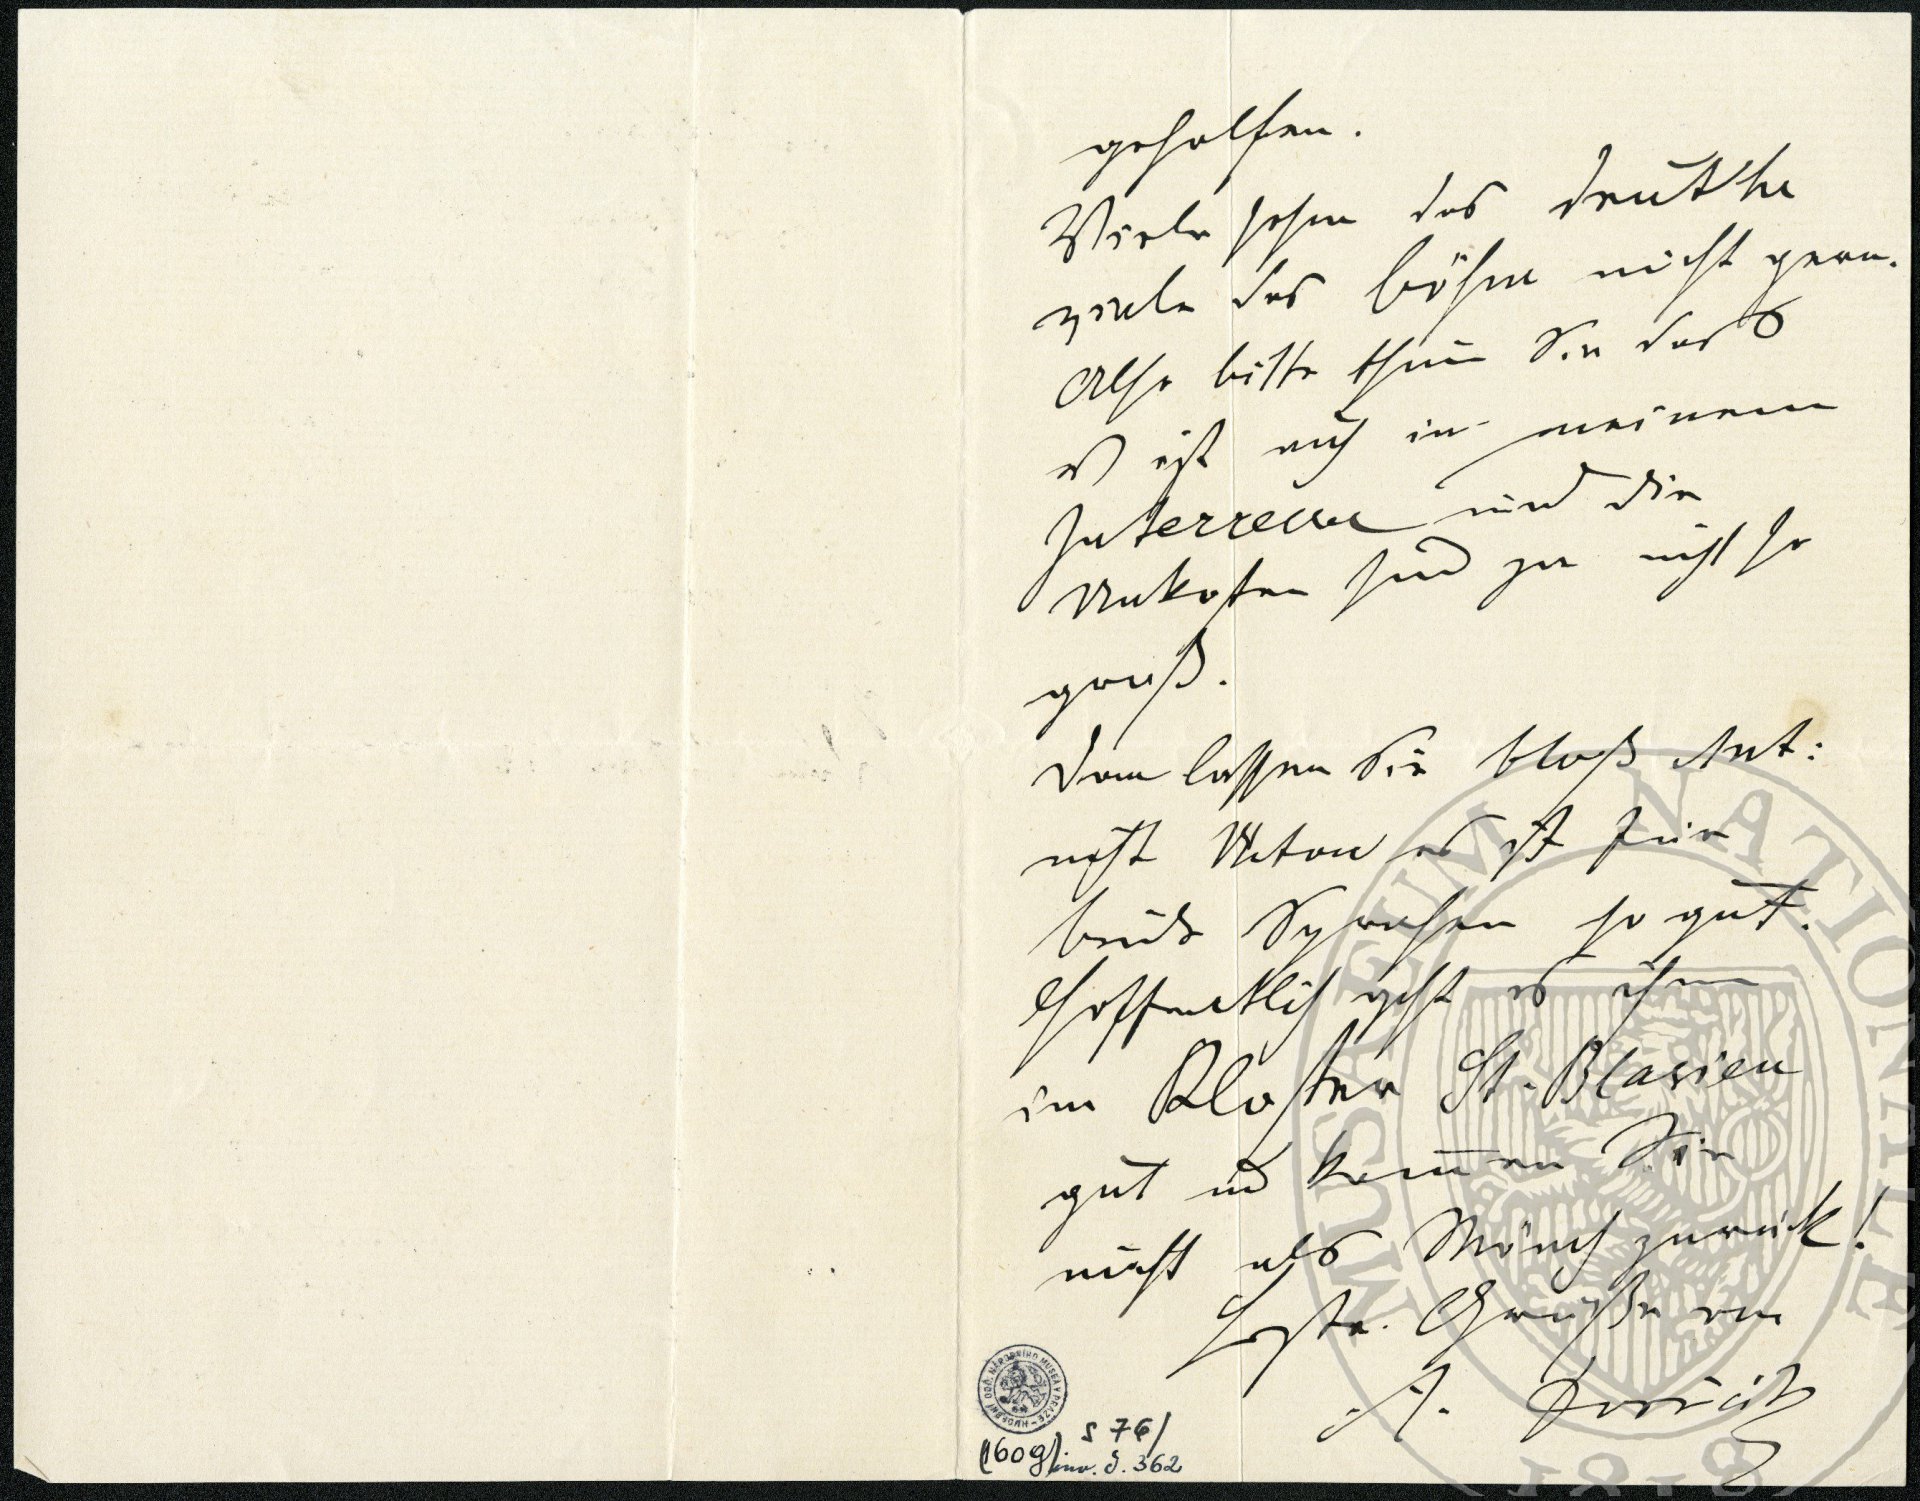 geholfen.
Viele sehen das deutsche
viele das böhm nicht gern.
Also bitte thun Sie das
es ist auch in meinem
Interresse und die
Unkosten sind ja nicht so
groß.
Dann lassen Sie bloß Ant:
nicht Anton es ist für
beide Sprachen so gut.
Hoffentlich geht es ihnen
im Kloster St. Blasien
gut und kommen Sie
nicht als Mönch zurück!
Beste Grüße von
A. Dvořák
S 76/
1609/ inv. č. 362
HUDEBNÍ ODD. NÁRODNÍHO MUSEA V PRAZE
MUSAEUM NATIONALE
1818